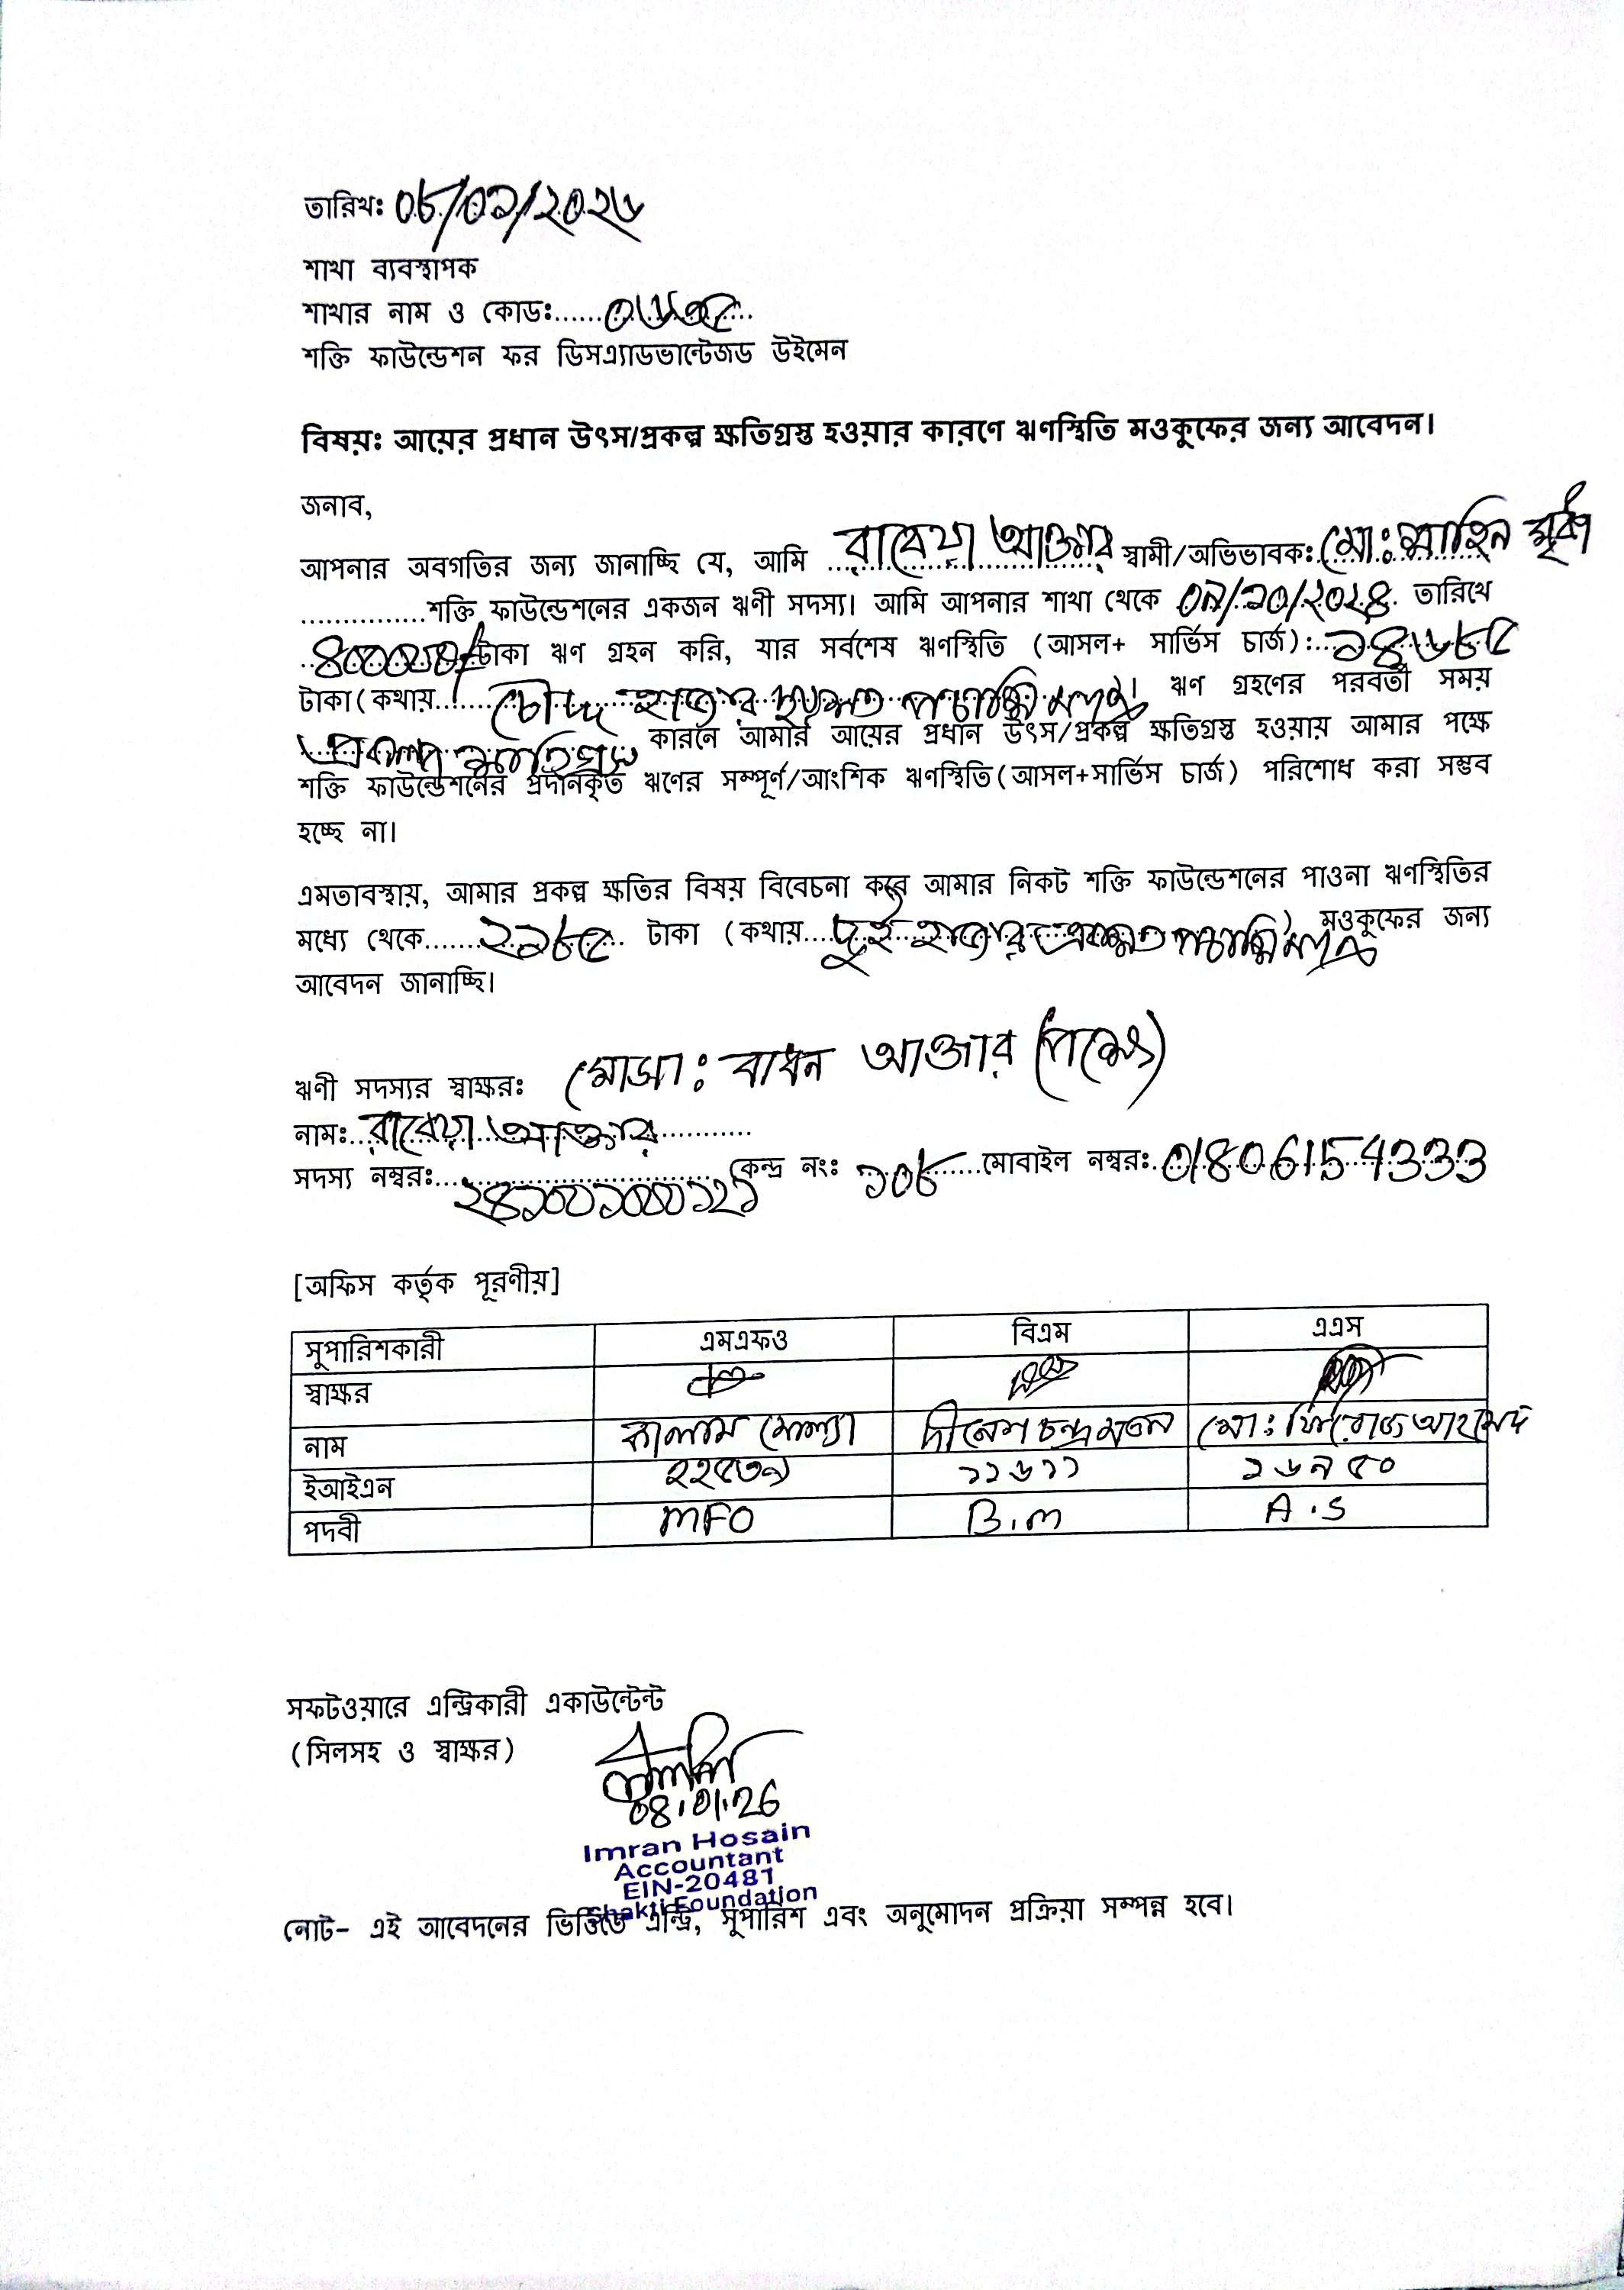 তারিখঃ ০৮/০১/২০২৬
শাখা ব্যবস্থাপক
শাখার নাম ও কোডঃ......০৬৩৫......
শক্তি ফাউন্ডেশন ফর ডিসএ্যাডভান্টেজড উইমেন
বিষয়ঃ আয়ের প্রধান উৎস/প্রকল্প ক্ষতিগ্রস্ত হওয়ার কারণে ঋণস্থিতি মওকুফের জন্য আবেদন।
জনাব,
আপনার অবগতির জন্য জানাচ্ছি যে, আমি রাবেয়া আক্তার স্বামী/অভিভাবকঃ মোঃ শাহিন মৃধা
...............শক্তি ফাউন্ডেশনের একজন ঋণী সদস্য। আমি আপনার শাখা থেকে ০৯/১০/২০২৪ তারিখে
৪০০০০/ টাকা ঋণ গ্রহন করি, যার সর্বশেষ ঋণস্থিতি (আসল+ সার্ভিস চার্জ):...১৪৬৮৫
টাকা(কথায়...চৌদ্দ হাজার ছয়শত পচাশি টাকা)। ঋণ গ্রহণের পরবর্তী সময়
প্রকল্প ক্ষতিগ্রস্ত কারনে আমার আয়ের প্রধান উৎস/প্রকল্প ক্ষতিগ্রস্ত হওয়ায় আমার পক্ষে
শক্তি ফাউন্ডেশনের প্রদানকৃত ঋণের সম্পূর্ণ/আংশিক ঋণস্থিতি(আসল+সার্ভিস চার্জ) পরিশোধ করা সম্ভব
হচ্ছে না।
এমতাবস্থায়, আমার প্রকল্প ক্ষতির বিষয় বিবেচনা করে আমার নিকট শক্তি ফাউন্ডেশনের পাওনা ঋণস্থিতির
মধ্যে থেকে......২১৮৫ টাকা (কথায়...দুই হাজার একশত পচাশি টাকা) মওকুফের জন্য
আবেদন জানাচ্ছি।
ঋণী সদস্যর স্বাক্ষরঃ মোসা: বাধন আক্তার (পক্ষে)
নামঃ...রাবেয়া আক্তার............
সদস্য নম্বরঃ...২৪১০০১০০০১২১ কেন্দ্র নংঃ ১০৮ মোবাইল নম্বরঃ 01806154333
[অফিস কর্তৃক পূরণীয়]
সুপারিশকারী এমএফও বিএম এএস
স্বাক্ষর
নাম কালাম মোল্যা দীনেশ চন্দ্র মন্ডল মো: ফিরোজ আহমেদ
ইআইএন ২২৫৩৯ ১১৬১১ ১৬৭৫০
পদবী MFO B.M A.S
সফটওয়ারে এন্ট্রিকারী একাউন্টেন্ট
(সিলসহ ও স্বাক্ষর)
08.01.26
Imran Hosain
Accountant
EIN-20481
Shakti Foundation
নোট- এই আবেদনের ভিত্তিতে এন্ট্রি, সুপারিশ এবং অনুমোদন প্রক্রিয়া সম্পন্ন হবে।